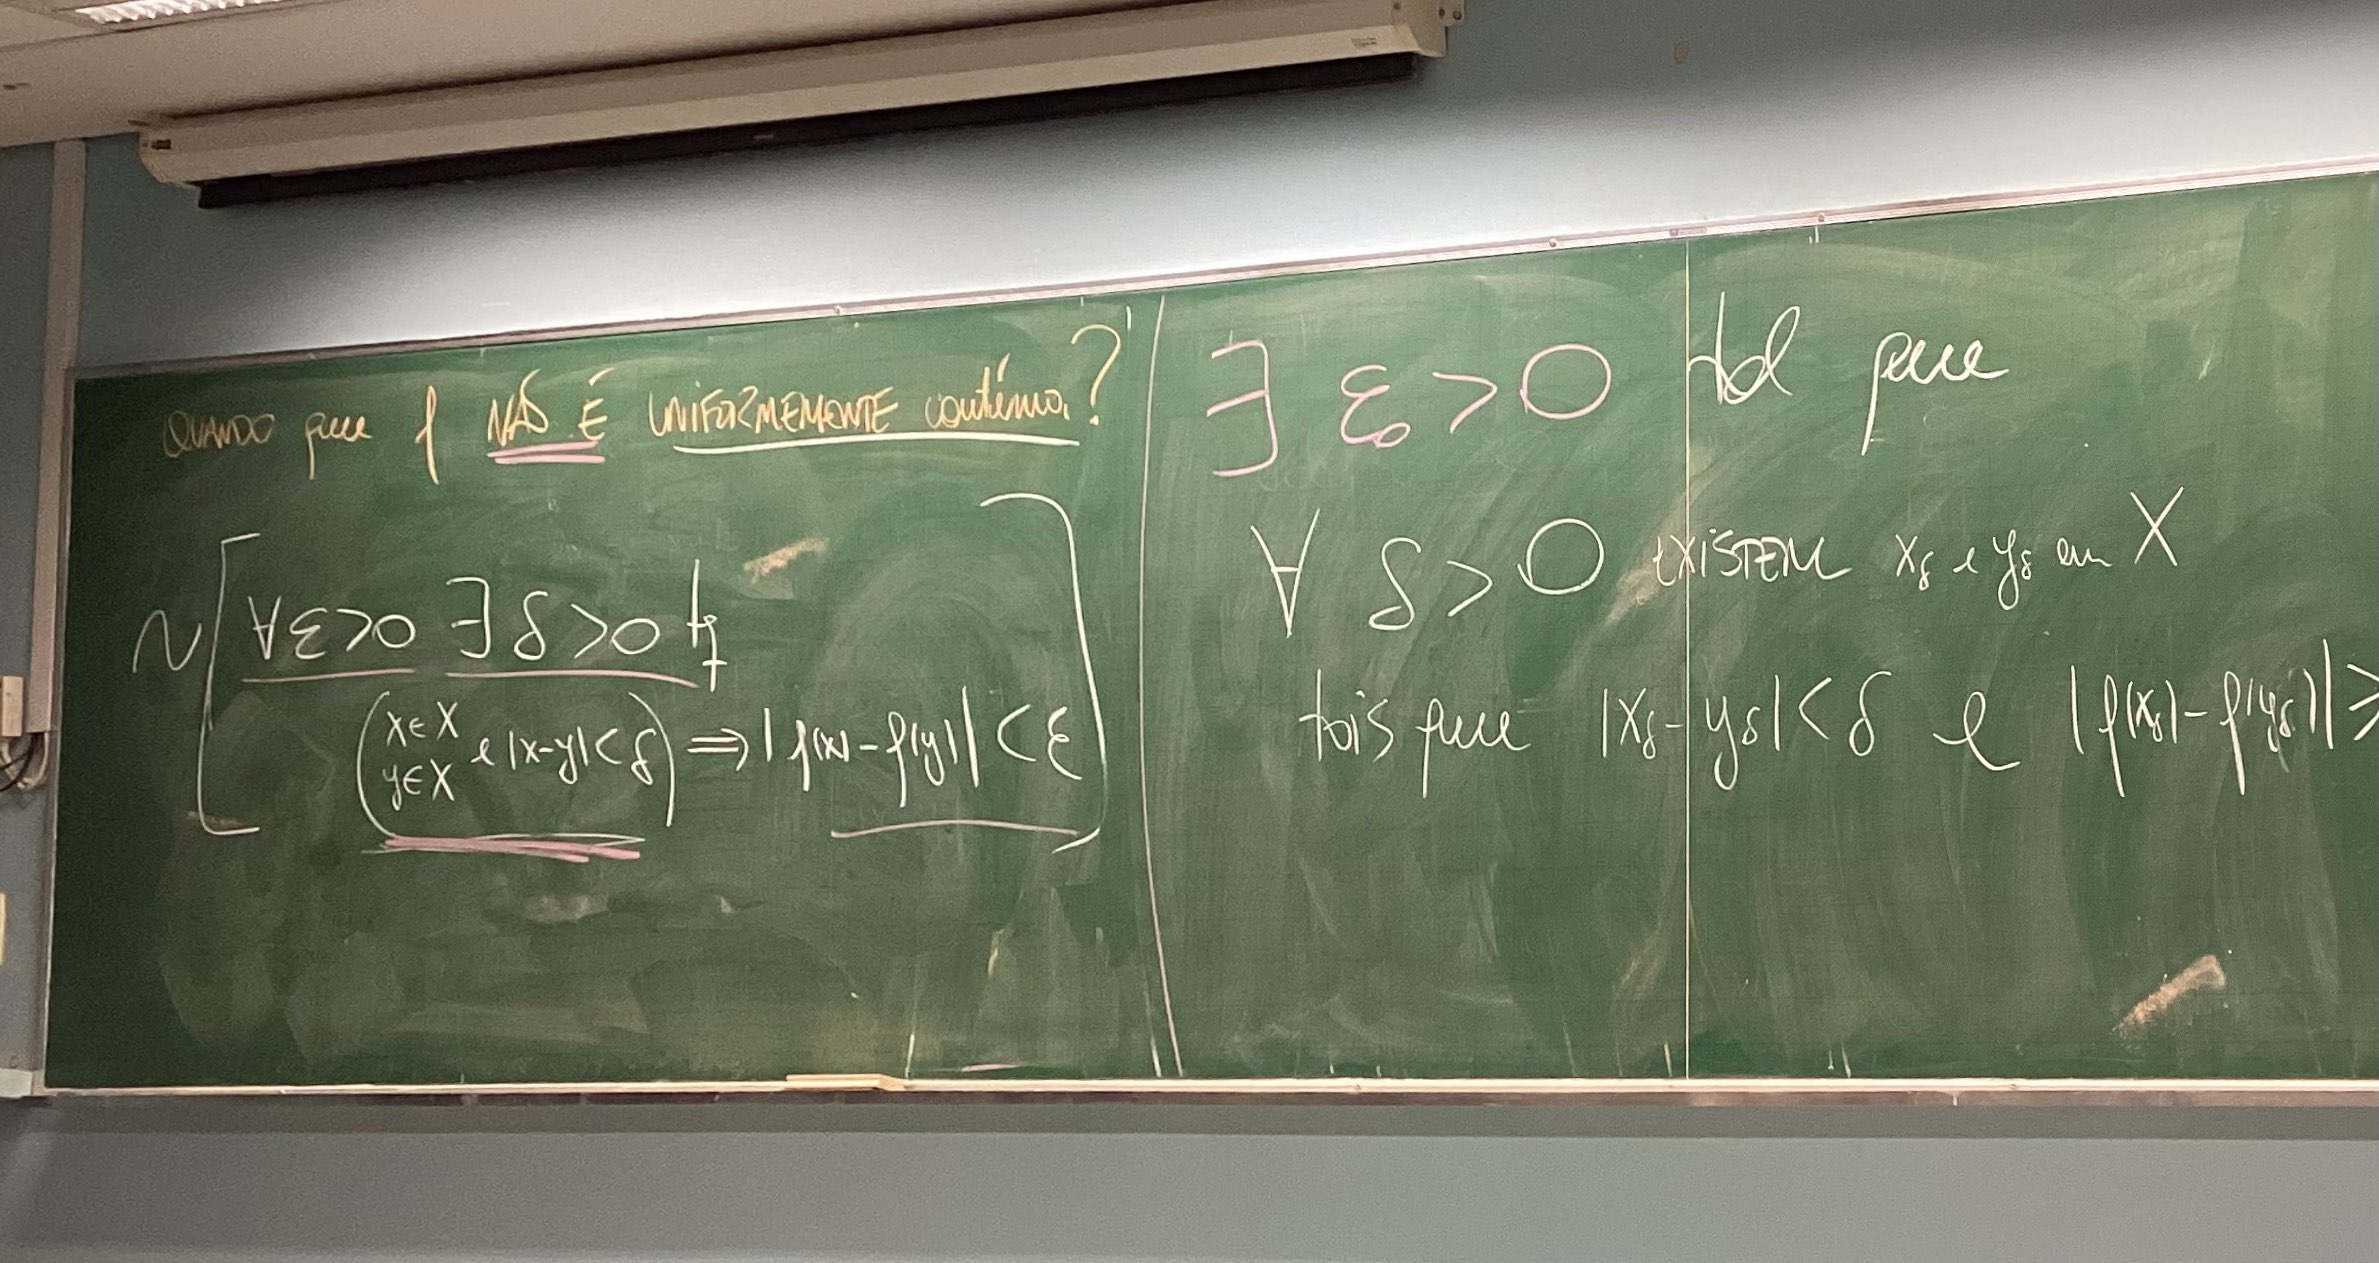 QUANDO que f NÃO É UNIFORMEMENTE contínua?
~[∀ε>0 ∃δ>0 tq
(x∈X y∈X e |x-y|<δ) ⇒ |f(x)-f(y)|<ε]
∃ ε₀>0 tal que
∀ δ>0 EXISTEM x_δ e y_δ em X
tais que |x_δ-y_δ|<δ e |f(x_δ)-f(y_δ)|≥